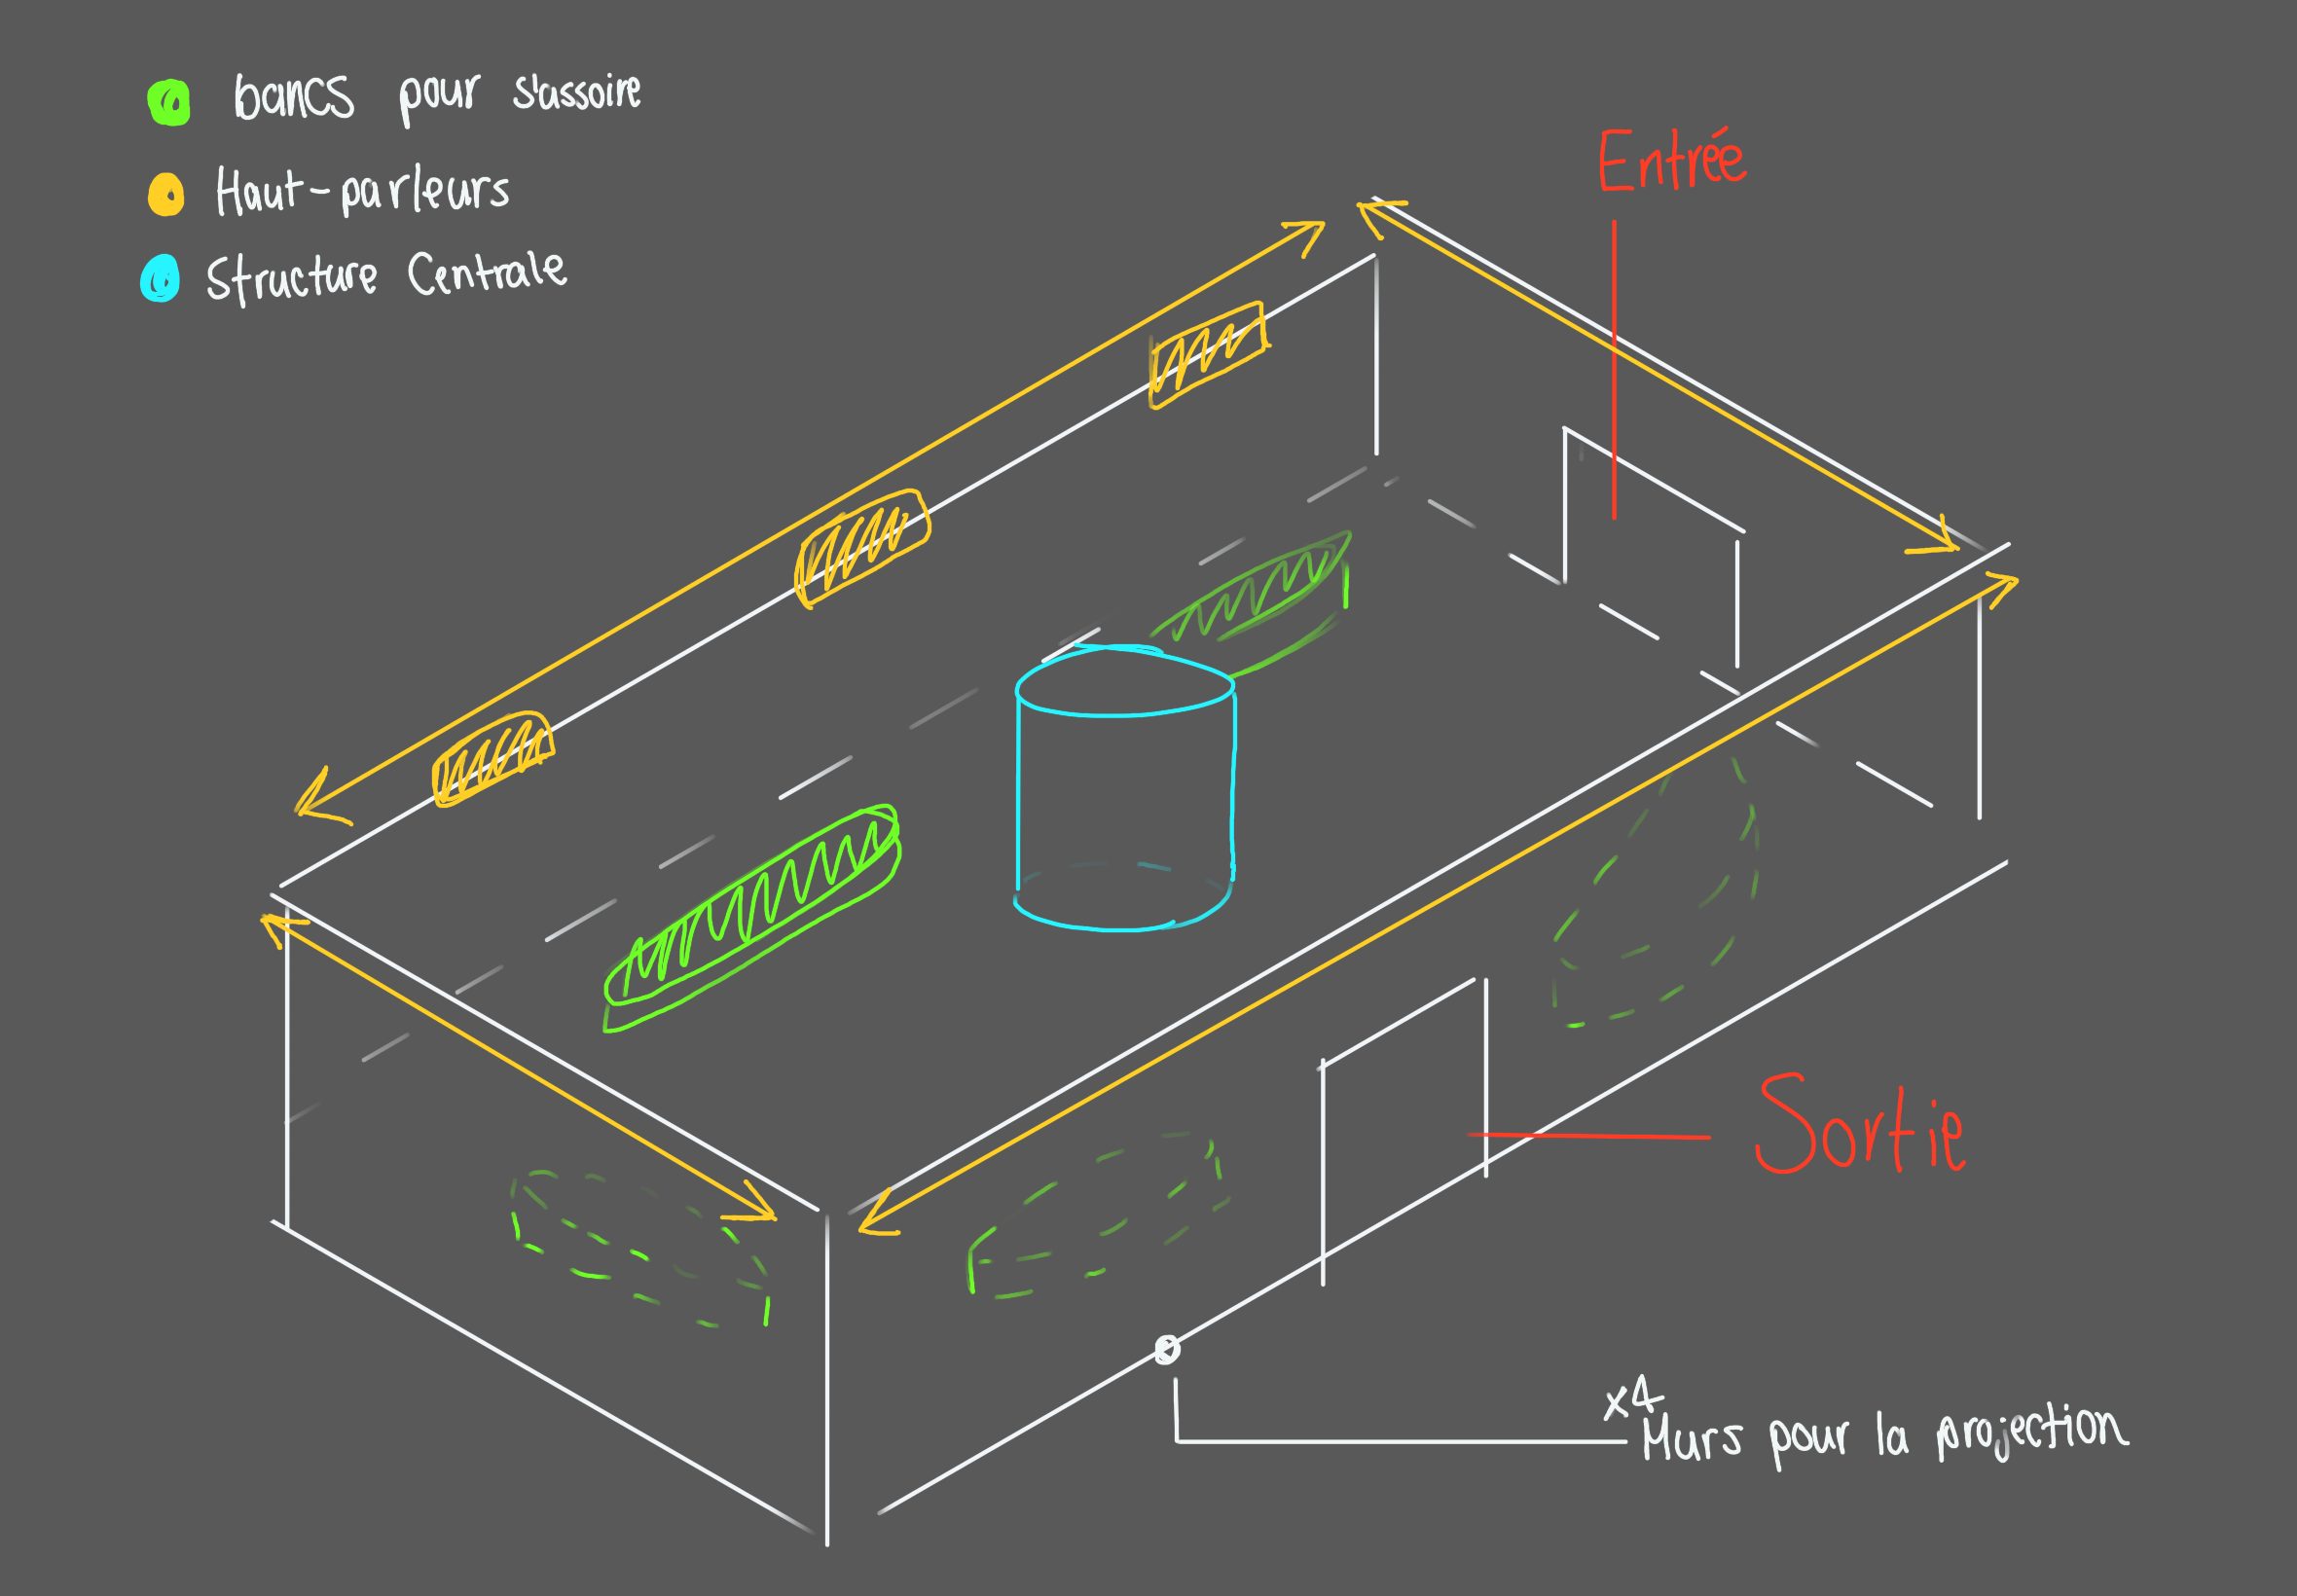 bancs pour s'assoire
Haut-parleurs
Structure Centrale
Entrée
Sortie
x4
Murs pour la projection